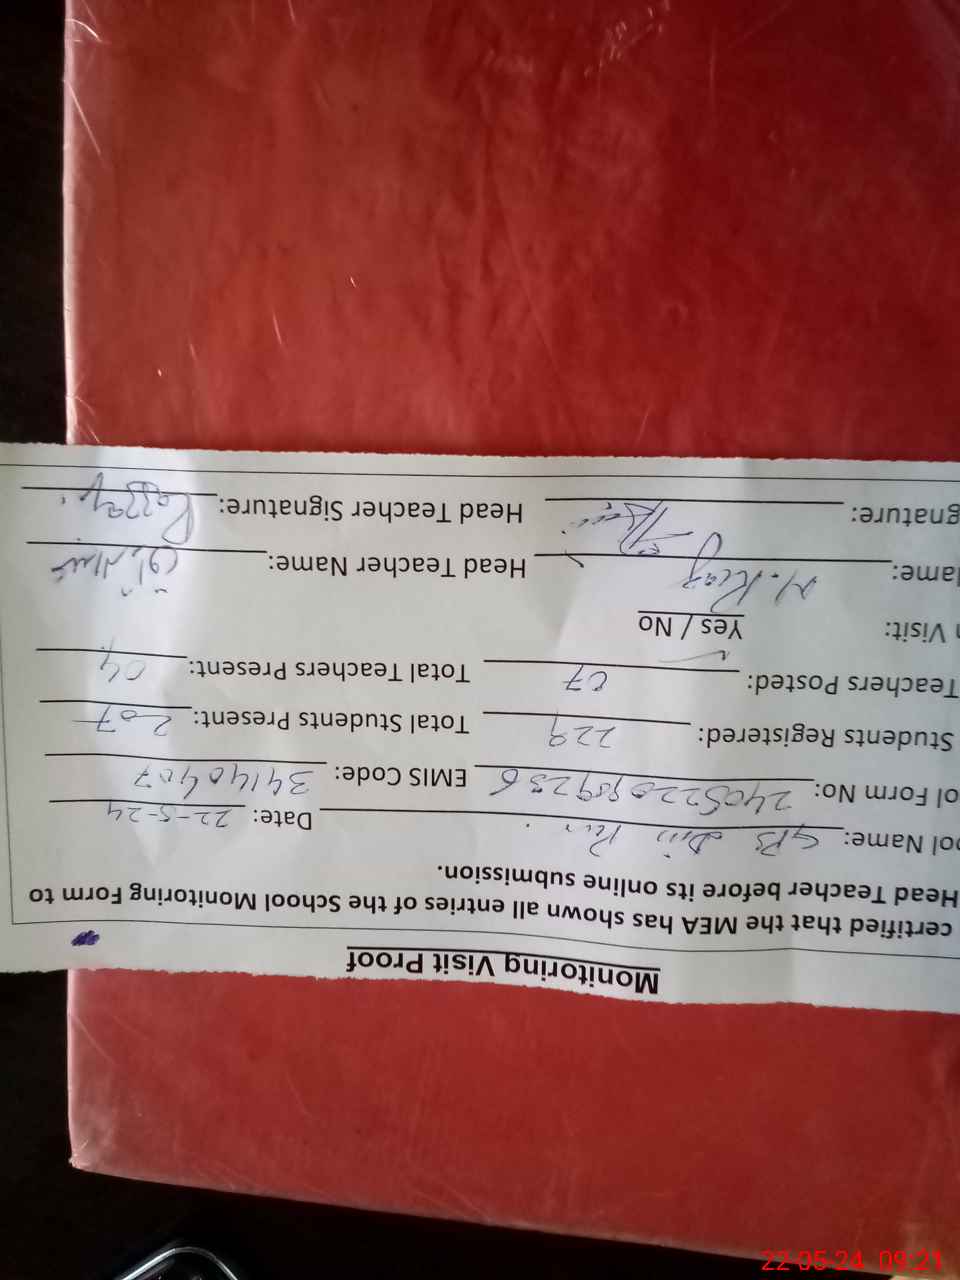 Monitoring Visit Proof
certified that the MEA has shown all entries of the School Monitoring Form to
Head Teacher before its online submission.
ol Name: GPS Din Pur. Date: 22-5-24
ol Form No: EMIS Code: 34140407
Students Registered: 229 Total Students Present: 207
Teachers Posted: 07 Total Teachers Present: 04
Visit: Yes / No
ame: M. Riaz Head Teacher Name:
gnature: Head Teacher Signature:
22-05-24 09:21